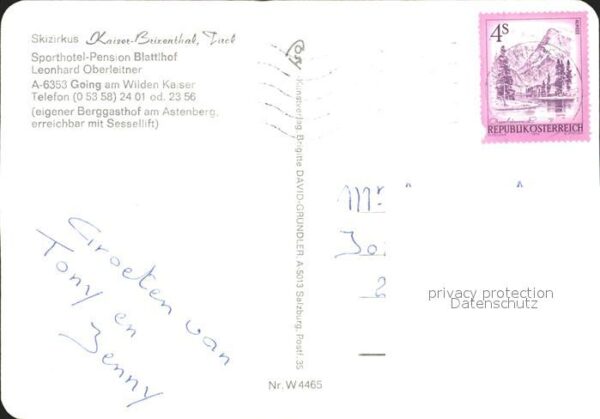 Skizirkus Kaiser-Brixenthal, Tirol
Sporthotel-Pension Blattlhof
Leonhard Oberleitner
A-6353 Going am Wilden Kaiser
Telefon (0 53 58) 24 01 od. 23 56
(eigener Berggasthof am Astenberg,
erreichbar mit Sessellift)
Kunstverlag Brigitte DAVID-GRÜNDLER, A 5013 Salzburg, Postf. 35
Nr. W 4465
4S
ALMSEE
REPUBLIK ÖSTERREICH
Groeten van
Tony en
Jenny
privacy protection
Datenschutz